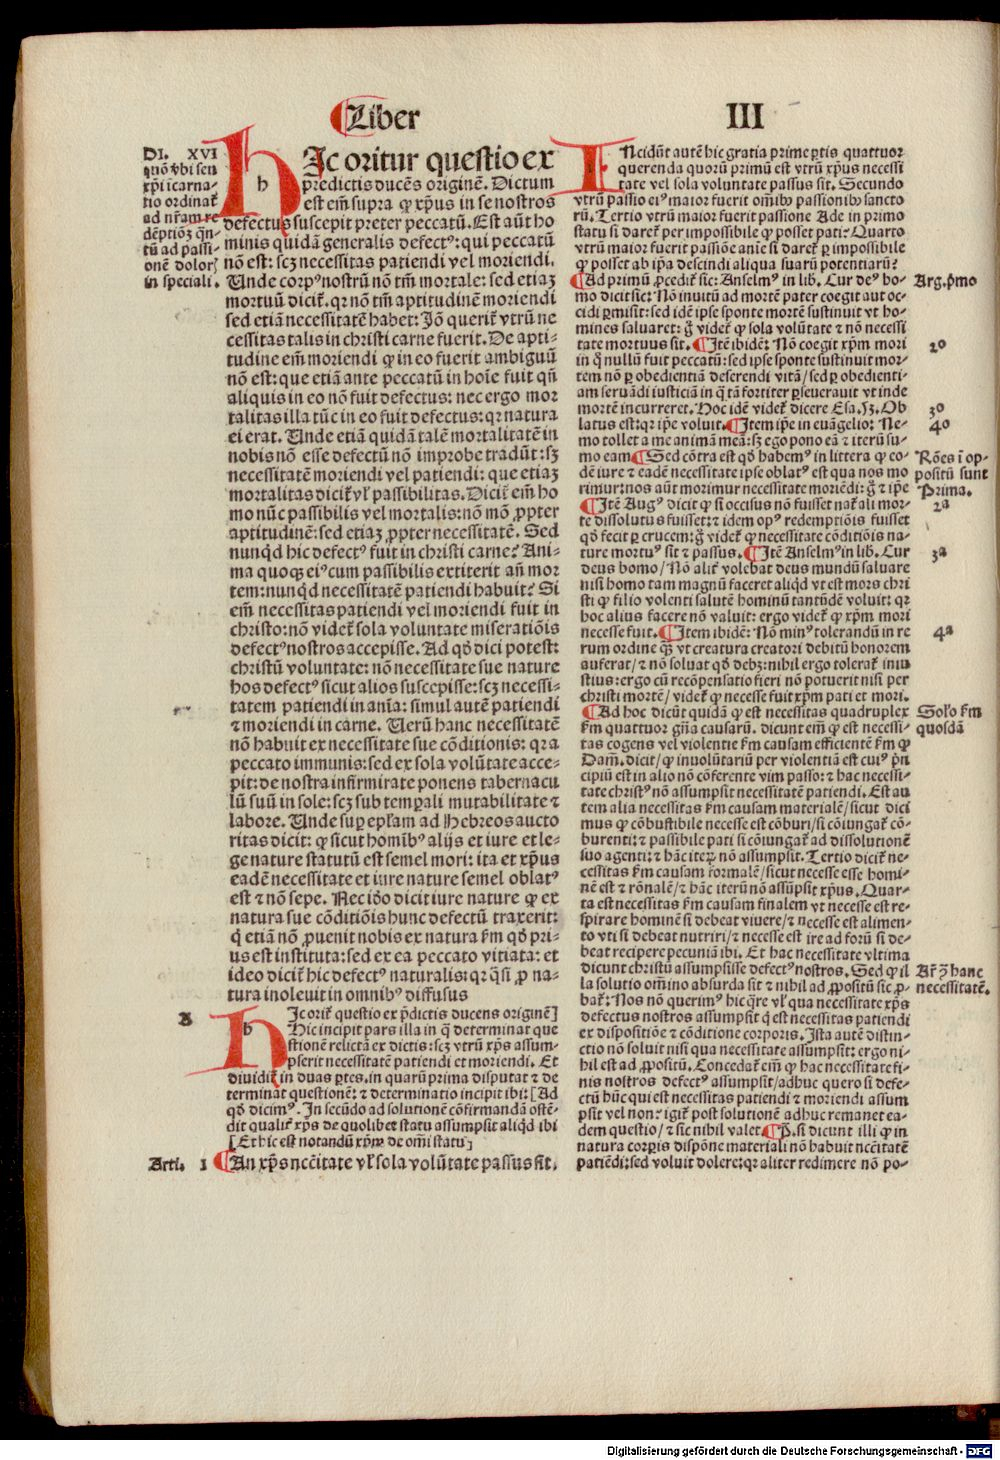 Liber III
DI. XVI
quō vbi seu
xp̄i īcarna-
tio ordinat̄
ad nr̄am re
dēptiōȝ qn̄-
tū ad passi-
onē dolorꝭ
in speciali.
HIc oritur questio ex
predictis ducēs originē. Dictum
est em̄ supra ꝙ xp̄us in se nostros
defectus suscepit preter peccatū. Est aūt ho
minis quidā generalis defectꝰ: qui peccatū
nō est: scȝ necessitas patiendi vel moriendi.
Unde corpꝰ nostrū nō tm̄ mortale: sed etiaȝ
mortuū dicit̄. qr nō tm̄ aptitudinē moriendi
sed etiā necessitatē habet: Jō querit̄ vtrū ne
cessitas talis in christi carne fuerit. De apti-
tudine em̄ moriendi ꝙ in eo fuerit ambiguū
nō est: que etiā ante peccatū in hoīe fuit qn̄
aliquis in eo nō fuit defectus: nec ergo mor
talitas illa tūc in eo fuit defectus: qr natura
ei erat. Unde etiā quidā talē mortalitatē in
nobis nō esse defectū nō improbe tradūt: sȝ
necessitatē moriendi vel patiendi: que etiaȝ
mortalitas dicit̄ vꝉ passibilitas. Dicit̄ em̄ ho
mo nūc passibilis vel mortalis: nō mō ꝓpter
aptitudinē: sed etiaȝ ꝓpter necessitatē. Sed
nunqd hic defectꝰ fuit in christi carne? Ani-
ma quoqȝ eiꝰ cum passibilis extiterit añ mor
tem: nunqd necessitatē patiendi habuit? Si
em̄ necessitas patiendi vel moriendi fuit in
christo: nō videt̄ sola voluntate miseratiōis
defectꝰ nostros accepisse. Ad qd̄ dici potest:
christū voluntate: nō necessitate sue nature
hos defectꝰ sicut alios suscepisse: scȝ necessi-
tatem patiendi in anīa: simul autē patiendi
⁊ moriendi in carne. Uerū hanc necessitatē
nō habuit ex necessitate sue cōditionis: qr a
peccato immunis: sed ex sola volūtate acce-
pit: de nostra infirmitate ponens tabernacu
lū suū in sole: scȝ sub temꝑali mutabilitate ⁊
labore. Unde suꝑ epl̄am ad Hebreos aucto
ritas dicit: ꝙ sicut homībꝰ alijs et iure et le-
ge nature statutū est semel mori: ita et xp̄us
eadē necessitate et iure nature semel oblatꝰ
est ⁊ nō sepe. Nec iō dicit iure nature ꝙ ex
natura sue cōditiōis hunc defectū traxerit:
q̄ etiā nō ꝓuenit nobis ex natura ẜm qd̄ pri-
us est instituta: sed ex ea peccato vitiata: et
ideo dicit̄ hic defectꝰ naturalis: qr q̄si ꝓ na-
tura inoleuit in omnibꝰ diffusus
HIc orit̄ questio ex p̄dictis ducens originē]
Hic incipit pars illa in q̄ determinat que
stionē relictā ex dictis: scȝ vtrū xp̄s assum-
pserit necessitatē patiendi et moriendi. Et
diuidit̄ in duas ꝑtes. in quarū prima disputat ⁊ de
terminat questionē: ⁊ determinatio incipit ibi: [Ad
qd̄ dicimꝰ. In secūdo ad solutionē cōfirmandā ostē-
dit qualit̄ xp̄s de quolibet statu assumpsit aliqd ibi
[Et hic est notandū xp̄m de omi statu]
Arti. 1 An xp̄s ncc̄itate vꝉ sola volūtate passus sit.
INcidūt autē hic gratia prime ꝑtis quattuor
querenda quorū primū est vtrū xp̄us necessi
tate vel sola voluntate passus sit. Secundo
vtrū passio eiꝰ maior fuerit omībꝰ passionibꝰ sancto
rū. Tertio vtrū maior fuerit passione Ade in primo
statu si daret̄ per impossibile ꝙ posset pati? Quarto
vtrū maior fuerit passiōe anīe si daret̄ ꝑ impossibile
ꝙ posset ab ip̄a descindi aliqua suarū potentiarū?
Ad primū ꝓcedit̄ sic: Anselmꝰ in lib. Cur deꝰ ho-
mo dicit sic: Nō inuitū ad mortē pater coegit aut oc-
cidi ꝑmisit: sed idē ipse sponte mortē sustinuit vt ho-
mines saluaret: g̊ videt̄ ꝙ sola volūtate ⁊ nō necessi
tate mortuus sit. Itē ibidē: Nō coegit xp̄m mori
in q̊ nullū fuit peccatū: sed ipse sponte sustinuit mor-
tem nō ꝑ obedientiā deserendi vitā/ sed ꝑ obedienti-
am seruādi iusticiā in q̄ tā fortiter ꝑseuerauit vt inde
mortē incurreret. Hoc idē videt̄ dicere Esa. 53. Ob
latus est: qr ip̄e voluit. Item ip̄e in euāgelio: Ne-
mo tollet a me animā meā: sȝ ego pono eā ⁊ iterū su-
mo eam Sed cōtra est qd̄ habemꝰ in littera ꝙ eo-
dē iure ⁊ eadē necessitate ipse oblatꝰ est qua nos mo
rimur: nos aūt morimur necessitate moriēdi: g̊ ⁊ ip̄e
Itē Augꝰ dicit ꝙ si occisus nō fuisset nat̄ali mor-
te dissolutus fuisset: ⁊ idem opꝰ redemptiōis fuisset
qd̄ fecit ꝑ crucem: g̊ videt̄ ꝙ necessitate cōditiōis na-
ture mortuꝰ sit ⁊ passus. Itē Anselmꝰ in lib. Cur
deus homo/ Nō alit̄ volebat deus mundū saluare
nisi homo tam magnū faceret aliqd vt est mors chri
sti ꝙ filio volenti salutē hominū tantūdē voluit: qr
hoc alius facere nō valuit: ergo videt̄ ꝙ xp̄m mori
necesse fuit. Item ibidē: Nō minꝰ tolerandū in re
rum ordine q̄ȝ vt creatura creatori debitū honorem
auferat/ ⁊ nō soluat qd̄ debȝ: nihil ergo tolerat̄ iniu
stius: ergo cū recōpensatio fieri nō potuerit nisi per
christi mortē/ videt̄ ꝙ necesse fuit xp̄m pati et mori.
Ad hoc dicūt quidā ꝙ est necessitas quadruplex
ẜm quattuor gn̄a causarū. dicunt em̄ ꝙ est necessi-
tas cogens vel violentie ẜm causam efficientē ẜm ꝙ
Dam̄. dicit/ ꝙ inuolūtariū per violentiā est cuiꝰ pn̄
cipiū est in alio nō cōferente vim passo: ⁊ hac necessi-
tate christꝰ nō assumpsit necessitatē patiendi. Est au
tem alia necessitas ẜm causam materialē/ sicut dici
mus ꝙ cōbustibile necesse est cōburi/ si cōiungat̄ cō-
burenti: ⁊ passibile pati si cōiungat̄ ad dissolutionē
suo agenti: ⁊ hāc iteꝝ nō assumpsit. Tertio dicit̄ ne-
cessitas ẜm causam formalē/ sicut necesse esse homi-
nē est ⁊ rōnalē/ ⁊ hāc iterū nō assūpsit xp̄us. Quar-
ta est necessitas ẜm causam finalem vt necesse est re-
spirare hominē si debeat viuere/ ⁊ necesse est alimen-
to vti si debeat nutriri/ ⁊ necesse est ire ad forū si de-
beat recipere pecuniā ibi. Et hac necessitate vltima
dicunt christū assumpsisse defectꝰ nostros. Sed ꝙ il
la solutio om̄ino absurda sit ⁊ nihil ad ꝓpositū sic ꝓ-
bat̄: Nos nō querimꝰ hic q̄re vꝉ qua necessitate xp̄s
defectus nostros assumpsit q̄ est necessitas patiendi
ex dispositiōe ⁊ cōditione corporis. Ista autē distin-
ctio nō soluit nisi qua necessitate assumpsit: ergo ni-
hil est ad ꝓpositū. Concedat̄ em̄ ꝙ hac necessitate fi-
nis nostros defectꝰ assumpsit/ adhuc quero si defe-
ctū hūc qui est necessitas patiendi ⁊ moriendi assum
psit vel non? igit̄ post solutionē adhuc remanet ea-
dem questio/ ⁊ sic nihil valet. P̄. si dicunt illi ꝙ in
natura corꝑis dispōne materiali nō habuit ncc̄itatē
patiēdi: sed voluit dolere: qr aliter redimere nō po-
Arg. ṗmo
2o
3o
4o
Rōes ī op-
positū sunt
Prima.
2a
3a
4a
Sol'o ẜm
quosdā
Ar̄ ꝯ̄ hanc
necessitatē.
Digitalisierung gefördert durch die Deutsche Forschungsgemeinschaft - DFG